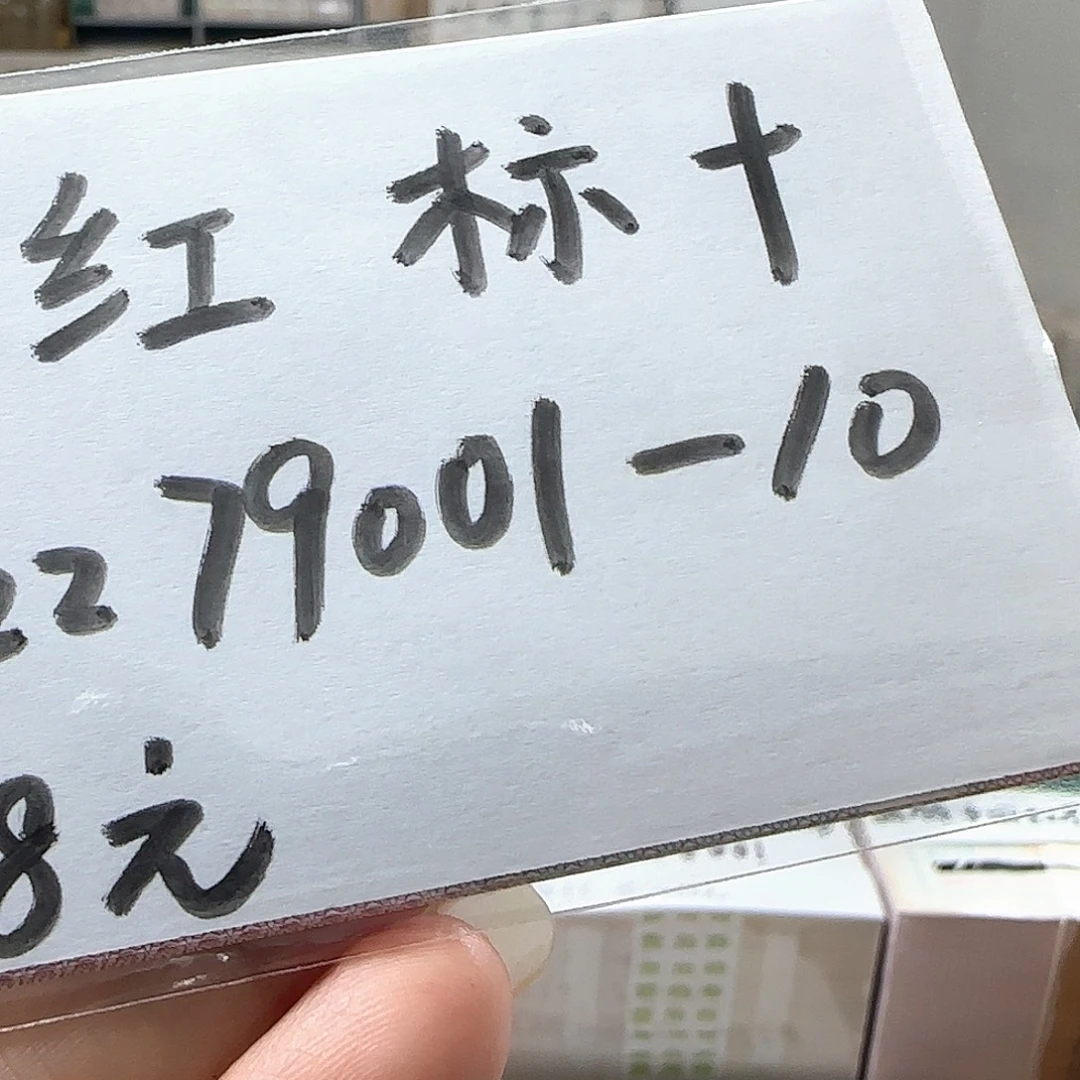 红标十
2279001-10
8元